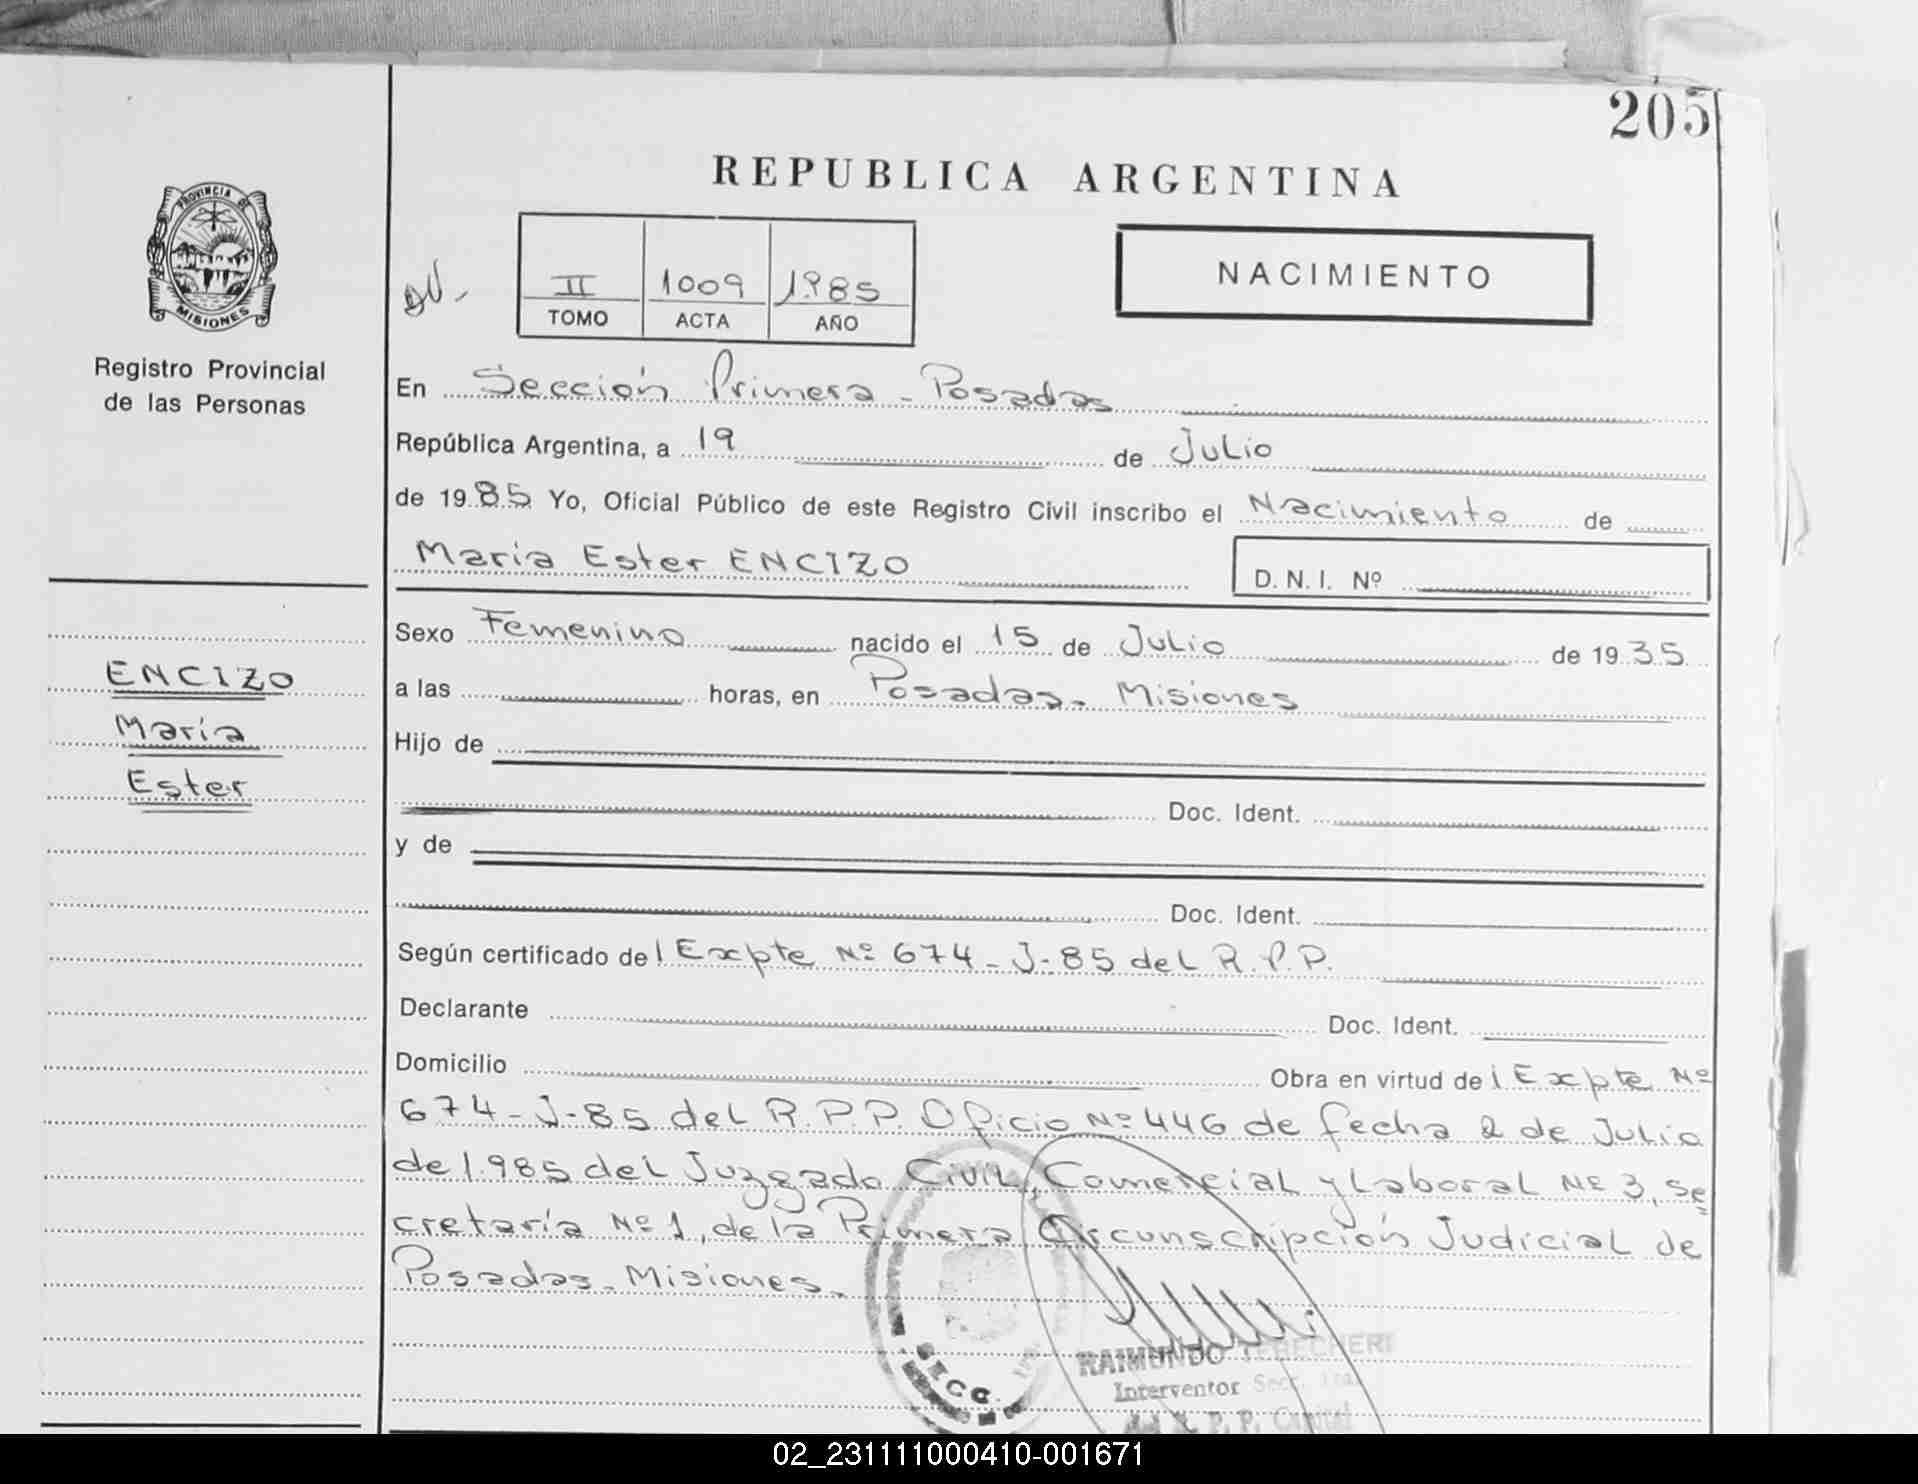 205
REPUBLICA ARGENTINA
PROVINCIA DE
MISIONES
II 1009 1.985
TOMO ACTA AÑO
NACIMIENTO
Registro Provincial
de las Personas
En Sección Primera - Posadas
República Argentina, a 19 de Julio
de 1985 Yo, Oficial Público de este Registro Civil inscribo el Nacimiento de
Maria Ester ENCIZO D.N.I. Nº
Sexo Femenino nacido el 15 de Julio de 1935
ENCIZO
María
Ester
a las horas, en Posadas - Misiones
Hijo de
Doc. Ident.
y de
Doc. Ident.
Según certificado del Expte Nº 674-J-85 del R.P.P.
Declarante Doc. Ident.
Domicilio Obra en virtud del Expte Nº
674-J-85 del R.P.P. Oficio Nº 446 de fecha 2 de Julio
de 1.985 del Juzgado Civil, Comercial y Laboral Nº 3, se
cretaría Nº 1, de la Primera Circunscripción Judicial de
Posadas - Misiones.
SECC. 1ra.
RAIMUNDO TERECHERI
Interventor Secc. 1ra.
del R. P. P. Capital
02_231111000410-001671